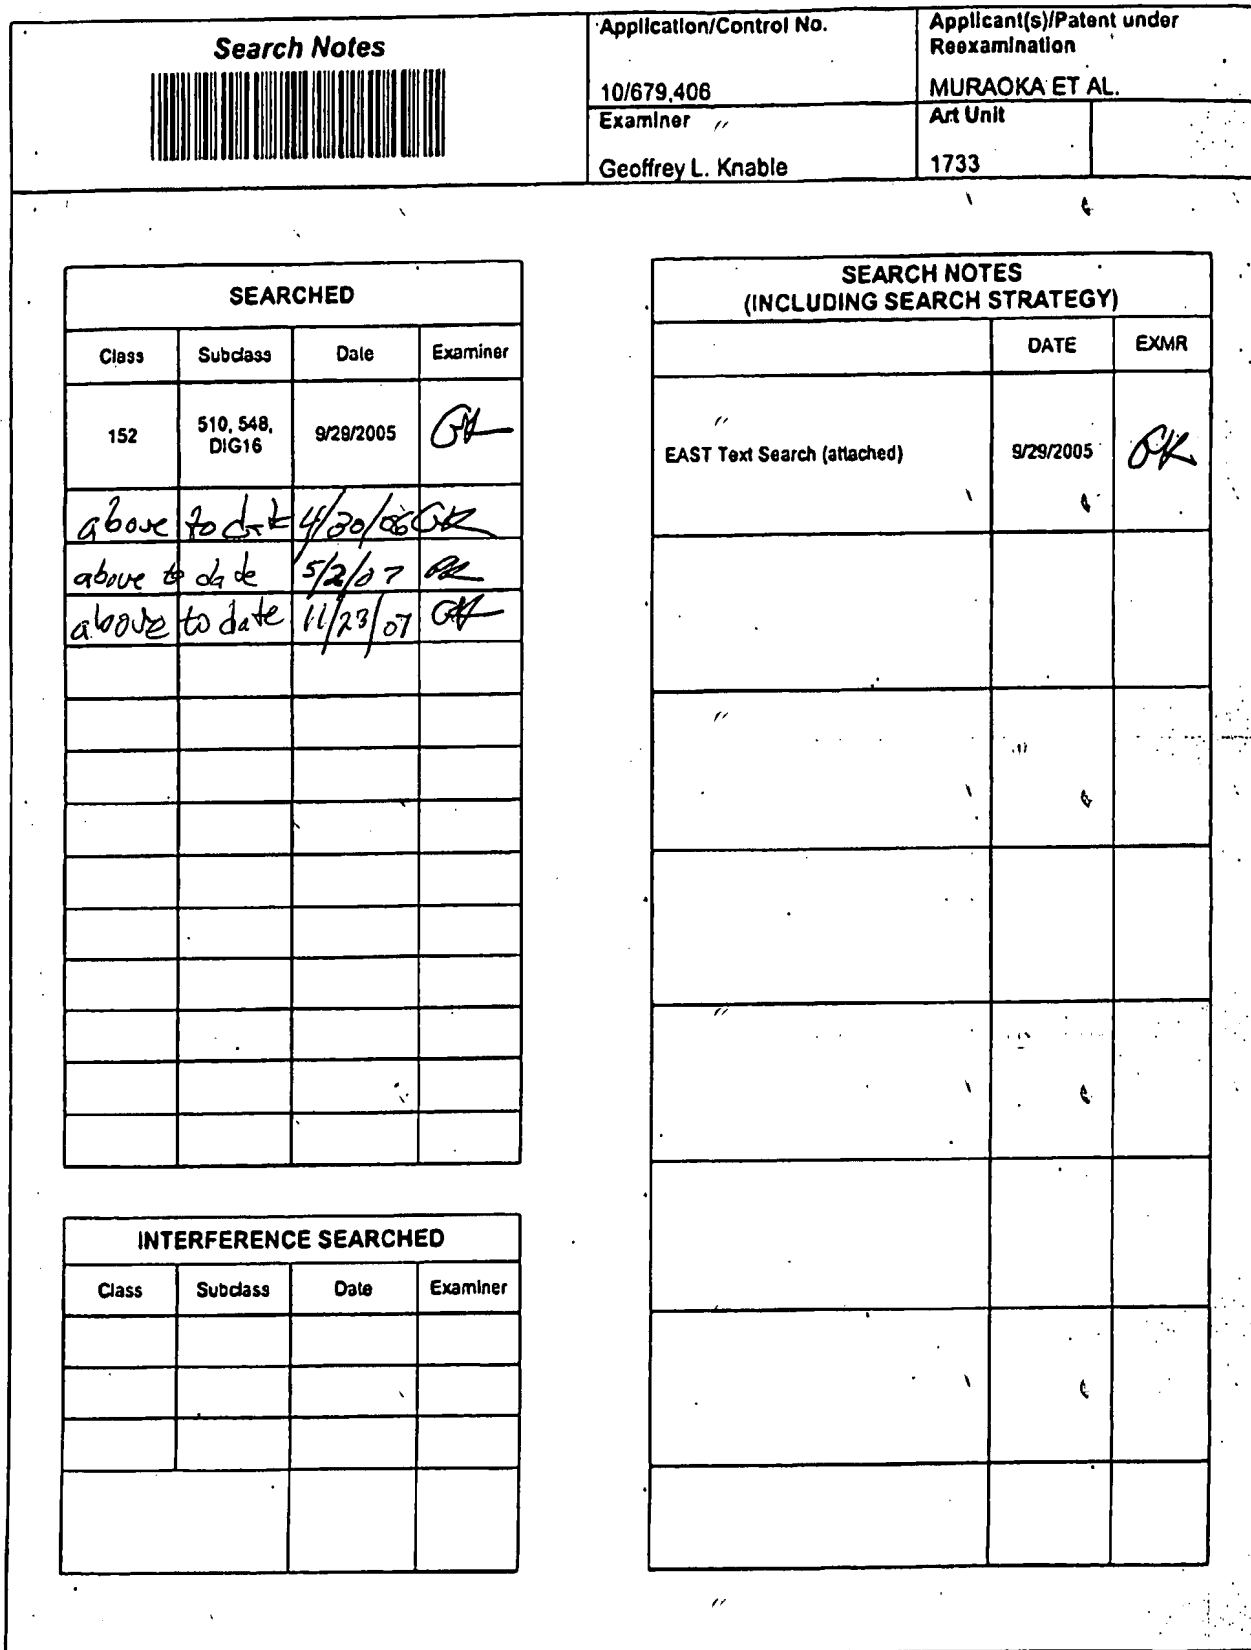 Search Notes
Application/Control No.
10/679,406
Applicant(s)/Patent under
Reexamination
MURAOKA ET AL.
Examiner
Geoffrey L. Knable
Art Unit
1733
SEARCHED
Class Subclass Date Examiner
152 510, 548, DIG16 9/29/2005 GK
above to date 4/30/06 GK
above to date 5/2/07 GK
above to date 11/23/07 GK
INTERFERENCE SEARCHED
Class Subclass Date Examiner
SEARCH NOTES
(INCLUDING SEARCH STRATEGY)
DATE EXMR
EAST Text Search (attached) 9/29/2005 GK